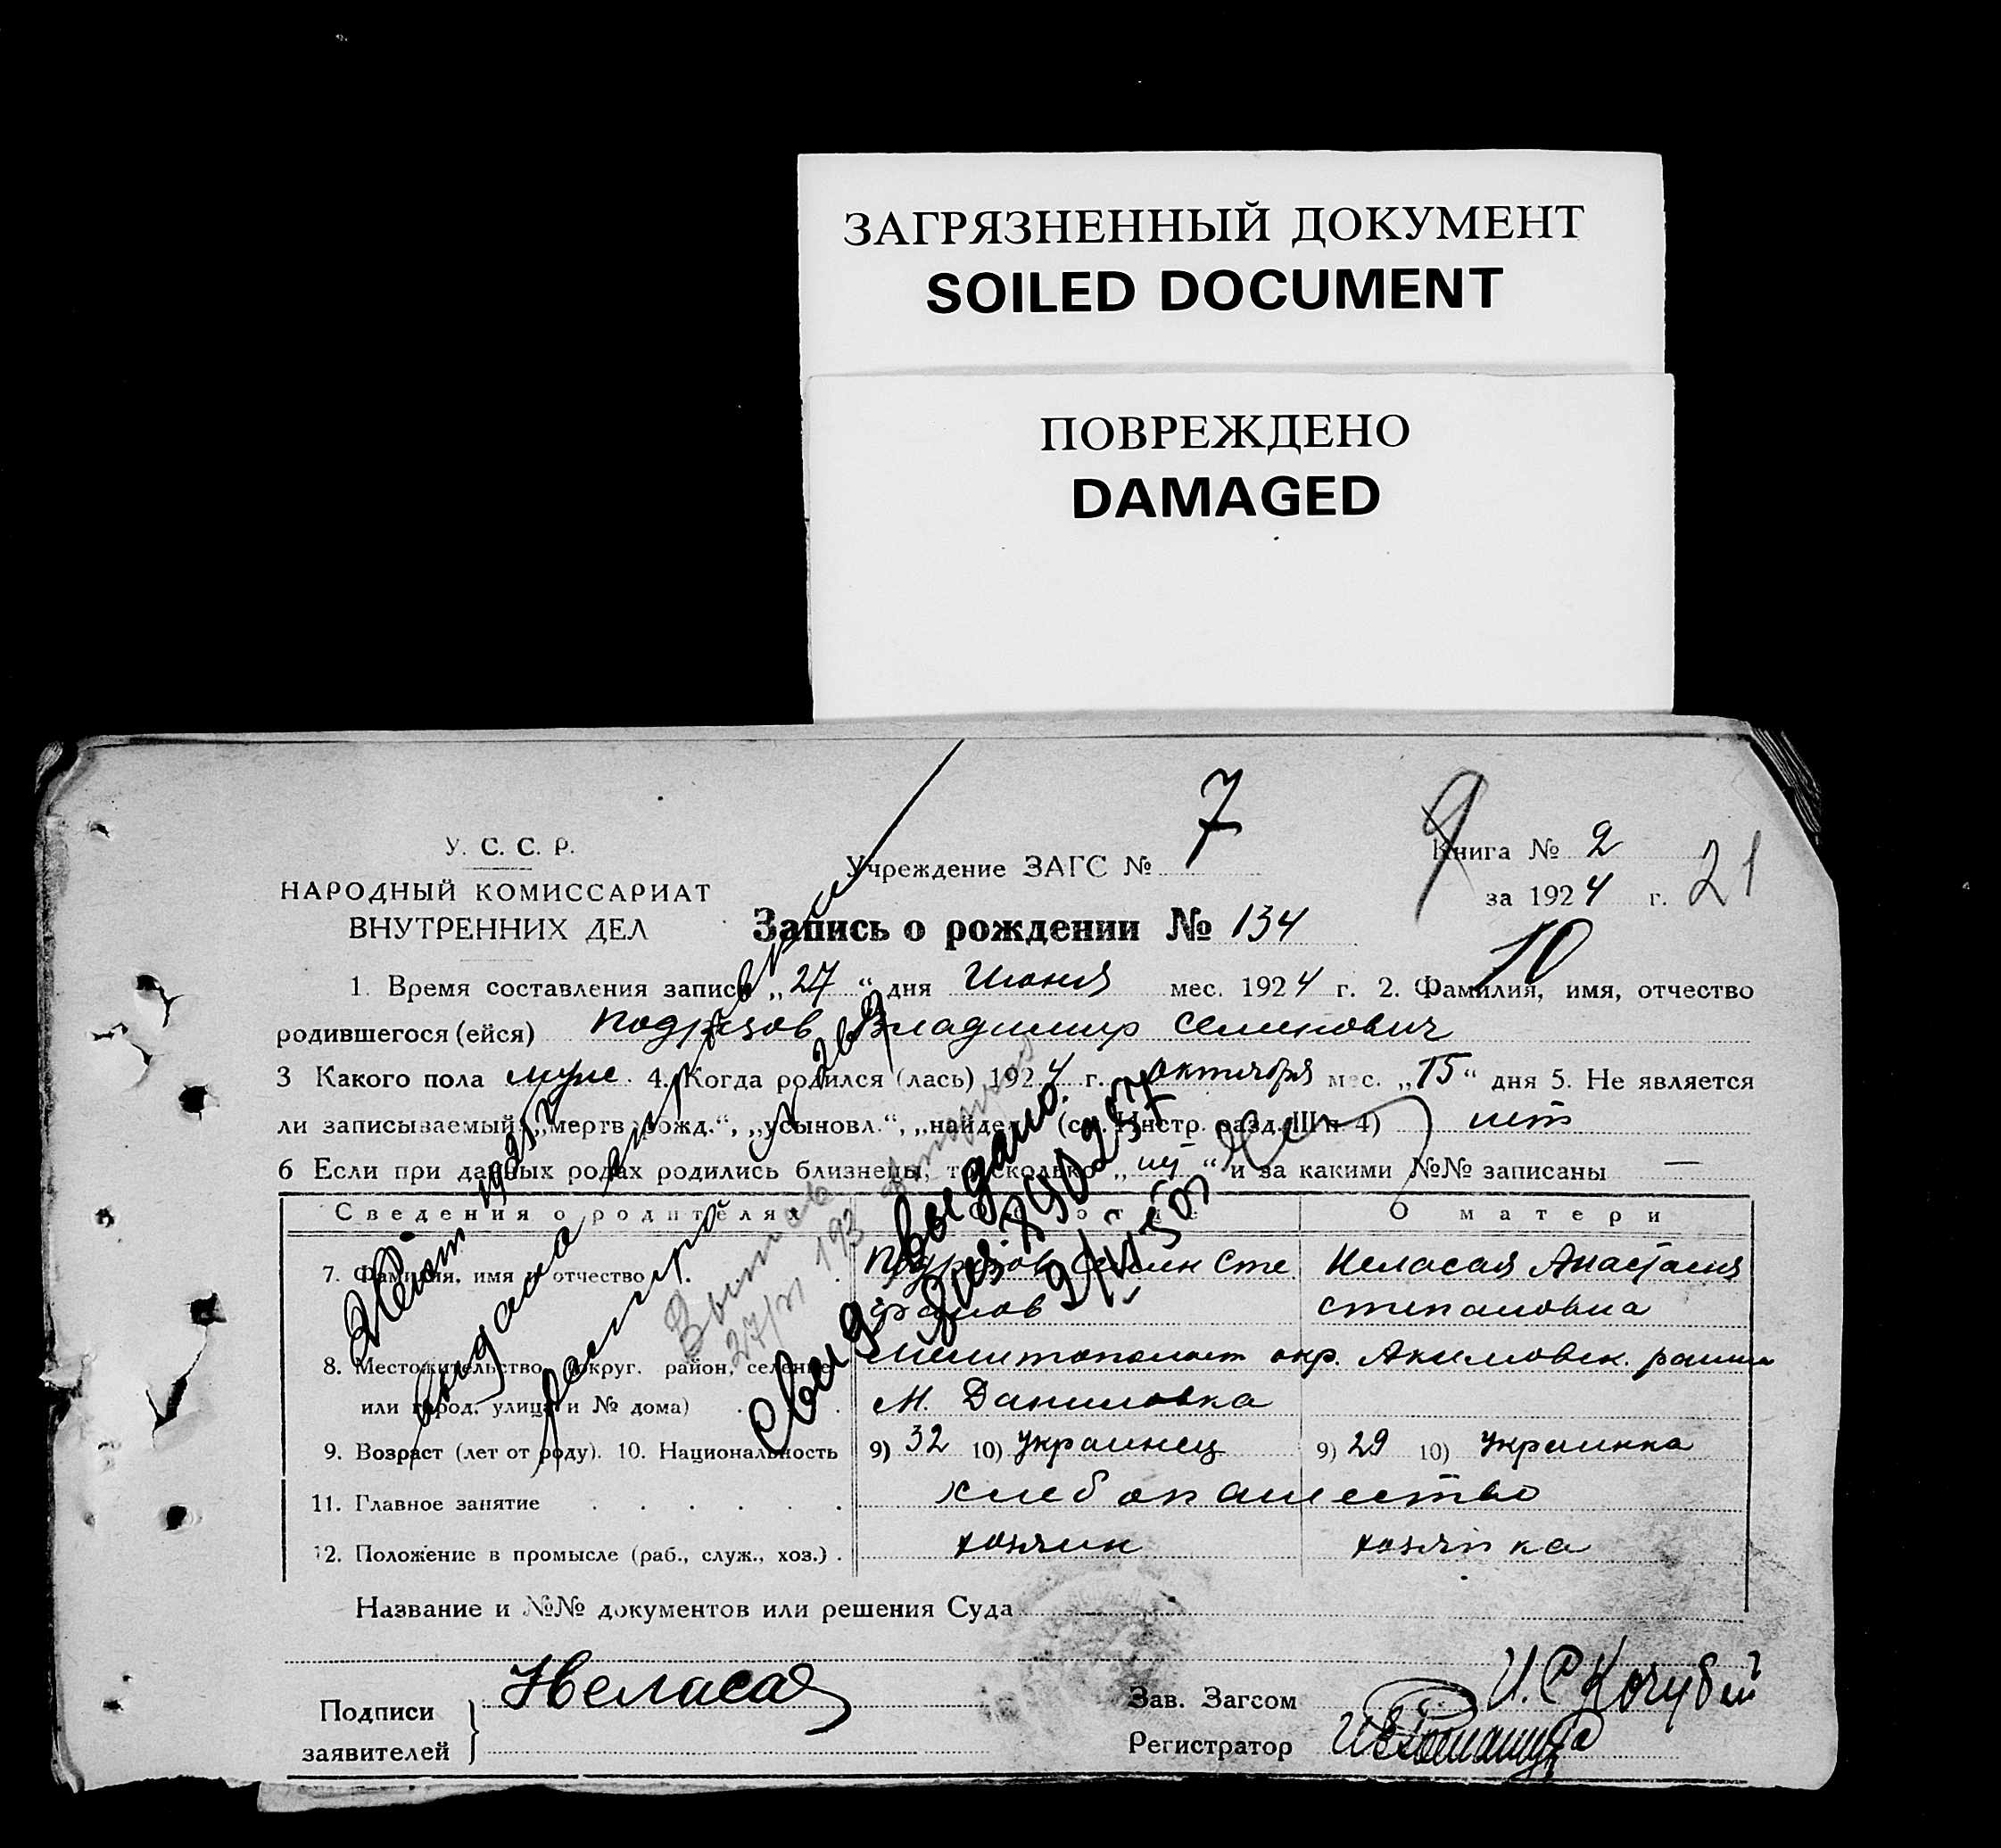 ЗАГРЯЗНЕННЫЙ ДОКУМЕНТ
SOILED DOCUMENT
ПОВРЕЖДЕНО
DAMAGED
У. С. С. Р.
НАРОДНЫЙ КОМИССАРИАТ
ВНУТРЕННИХ ДЕЛ
Учреждение ЗАГС № 7
9
Книга № 2
за 1924 г. 21
Запись о рождении № 134
10
1. Время составления записи „27“ дня Июня мес. 1924 г. 2. Фамилия, имя, отчество
родившегося (ейся) Владимир Семинович
3 Какого пола муж. 4. Когда родился (лась) 1924 г. октября мес. „15“ дня 5. Не является
ли записываемый „мертв рожд.“, „усыновл.“, „найден (см. Инстр. разд. III п 4) нет
6 Если при данных родах родились близнецы, то сколько „ “ и за какими №№ записаны —
Сведения о родителях
О матери
7. Фамилия, имя и отчество
Семин Сте
Неласая Анастасия
фанов
Степановна
8. Местожительство (округ, район, селение
окр. Акимовск. район
или город, улица и № дома)
М. Даниловка
9. Возраст (лет от роду). 10. Национальность
9) 32 10) украинец
9) 29 10) украинка
11. Главное занятие
хлебопашество
12. Положение в промысле (раб., служ., хоз.)
хозяин
хозяйка
Название и №№ документов или решения Суда
Подписи
заявителей
Неласая
Зав. Загсом И. С Кочубей
Регистратор
Свид. выдано.